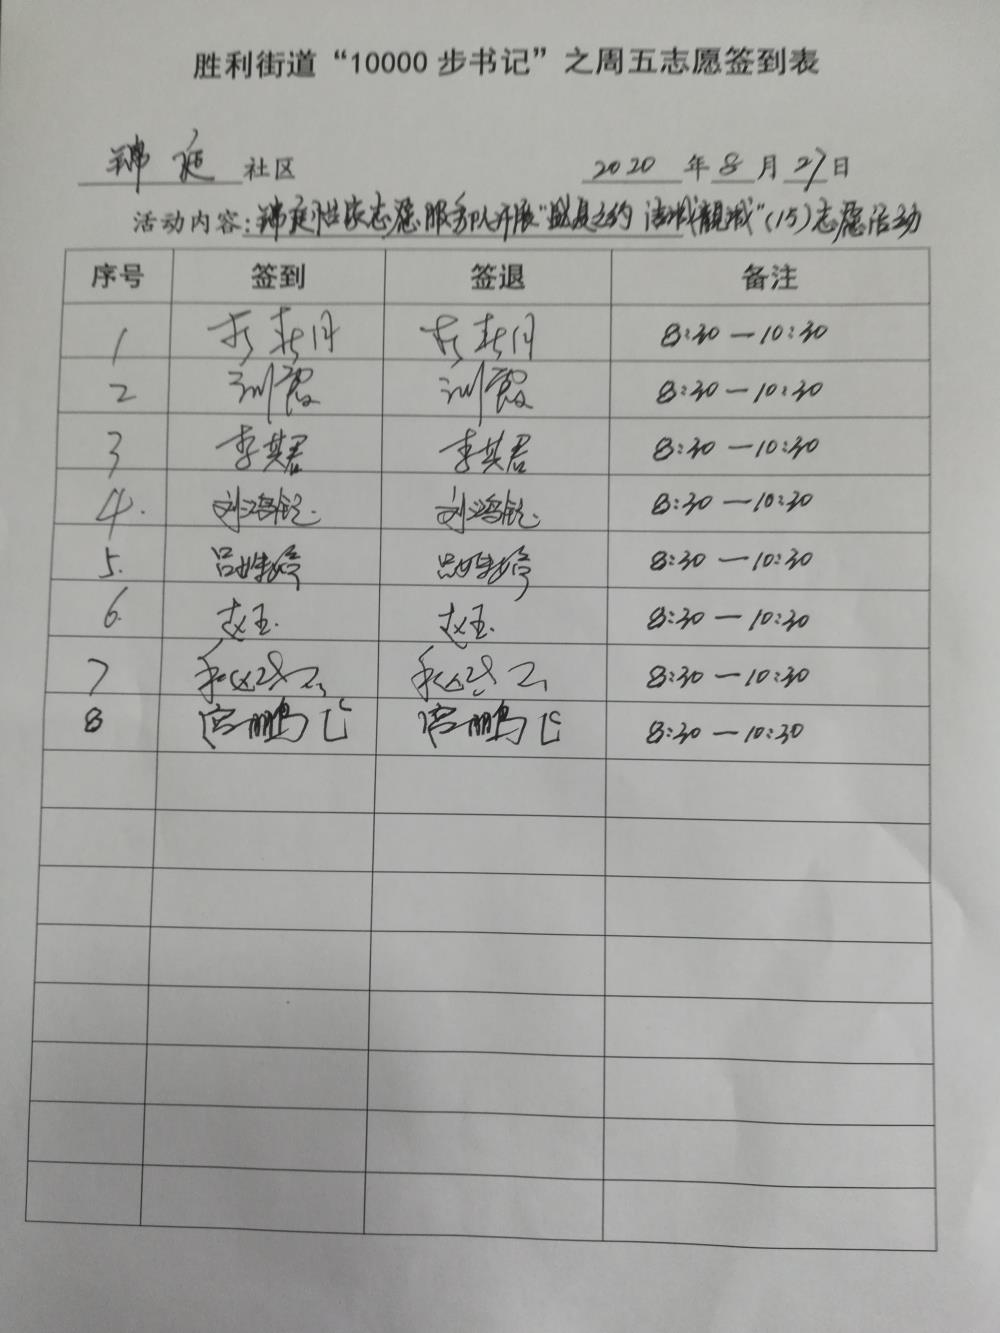 胜利街道“10000步书记”之周五志愿签到表
锦庭社区 2020年8月27日
活动内容:锦庭 志愿服务队开展“盛夏之约 洁城靓城”(15)志愿活动
序号 签到 签退 备注
1 8:30—10:30
2 刘霞 刘霞 8:30—10:30
3 李其君 李其君 8:30—10:30
4. 刘鸿钦 刘鸿钦 8:30—10:30
5. 吕姝婷 吕姝婷 8:30—10:30
6. 赵玉 赵玉 8:30—10:30
7 8:30—10:30
8 宫鹏飞 宫鹏飞 8:30—10:30